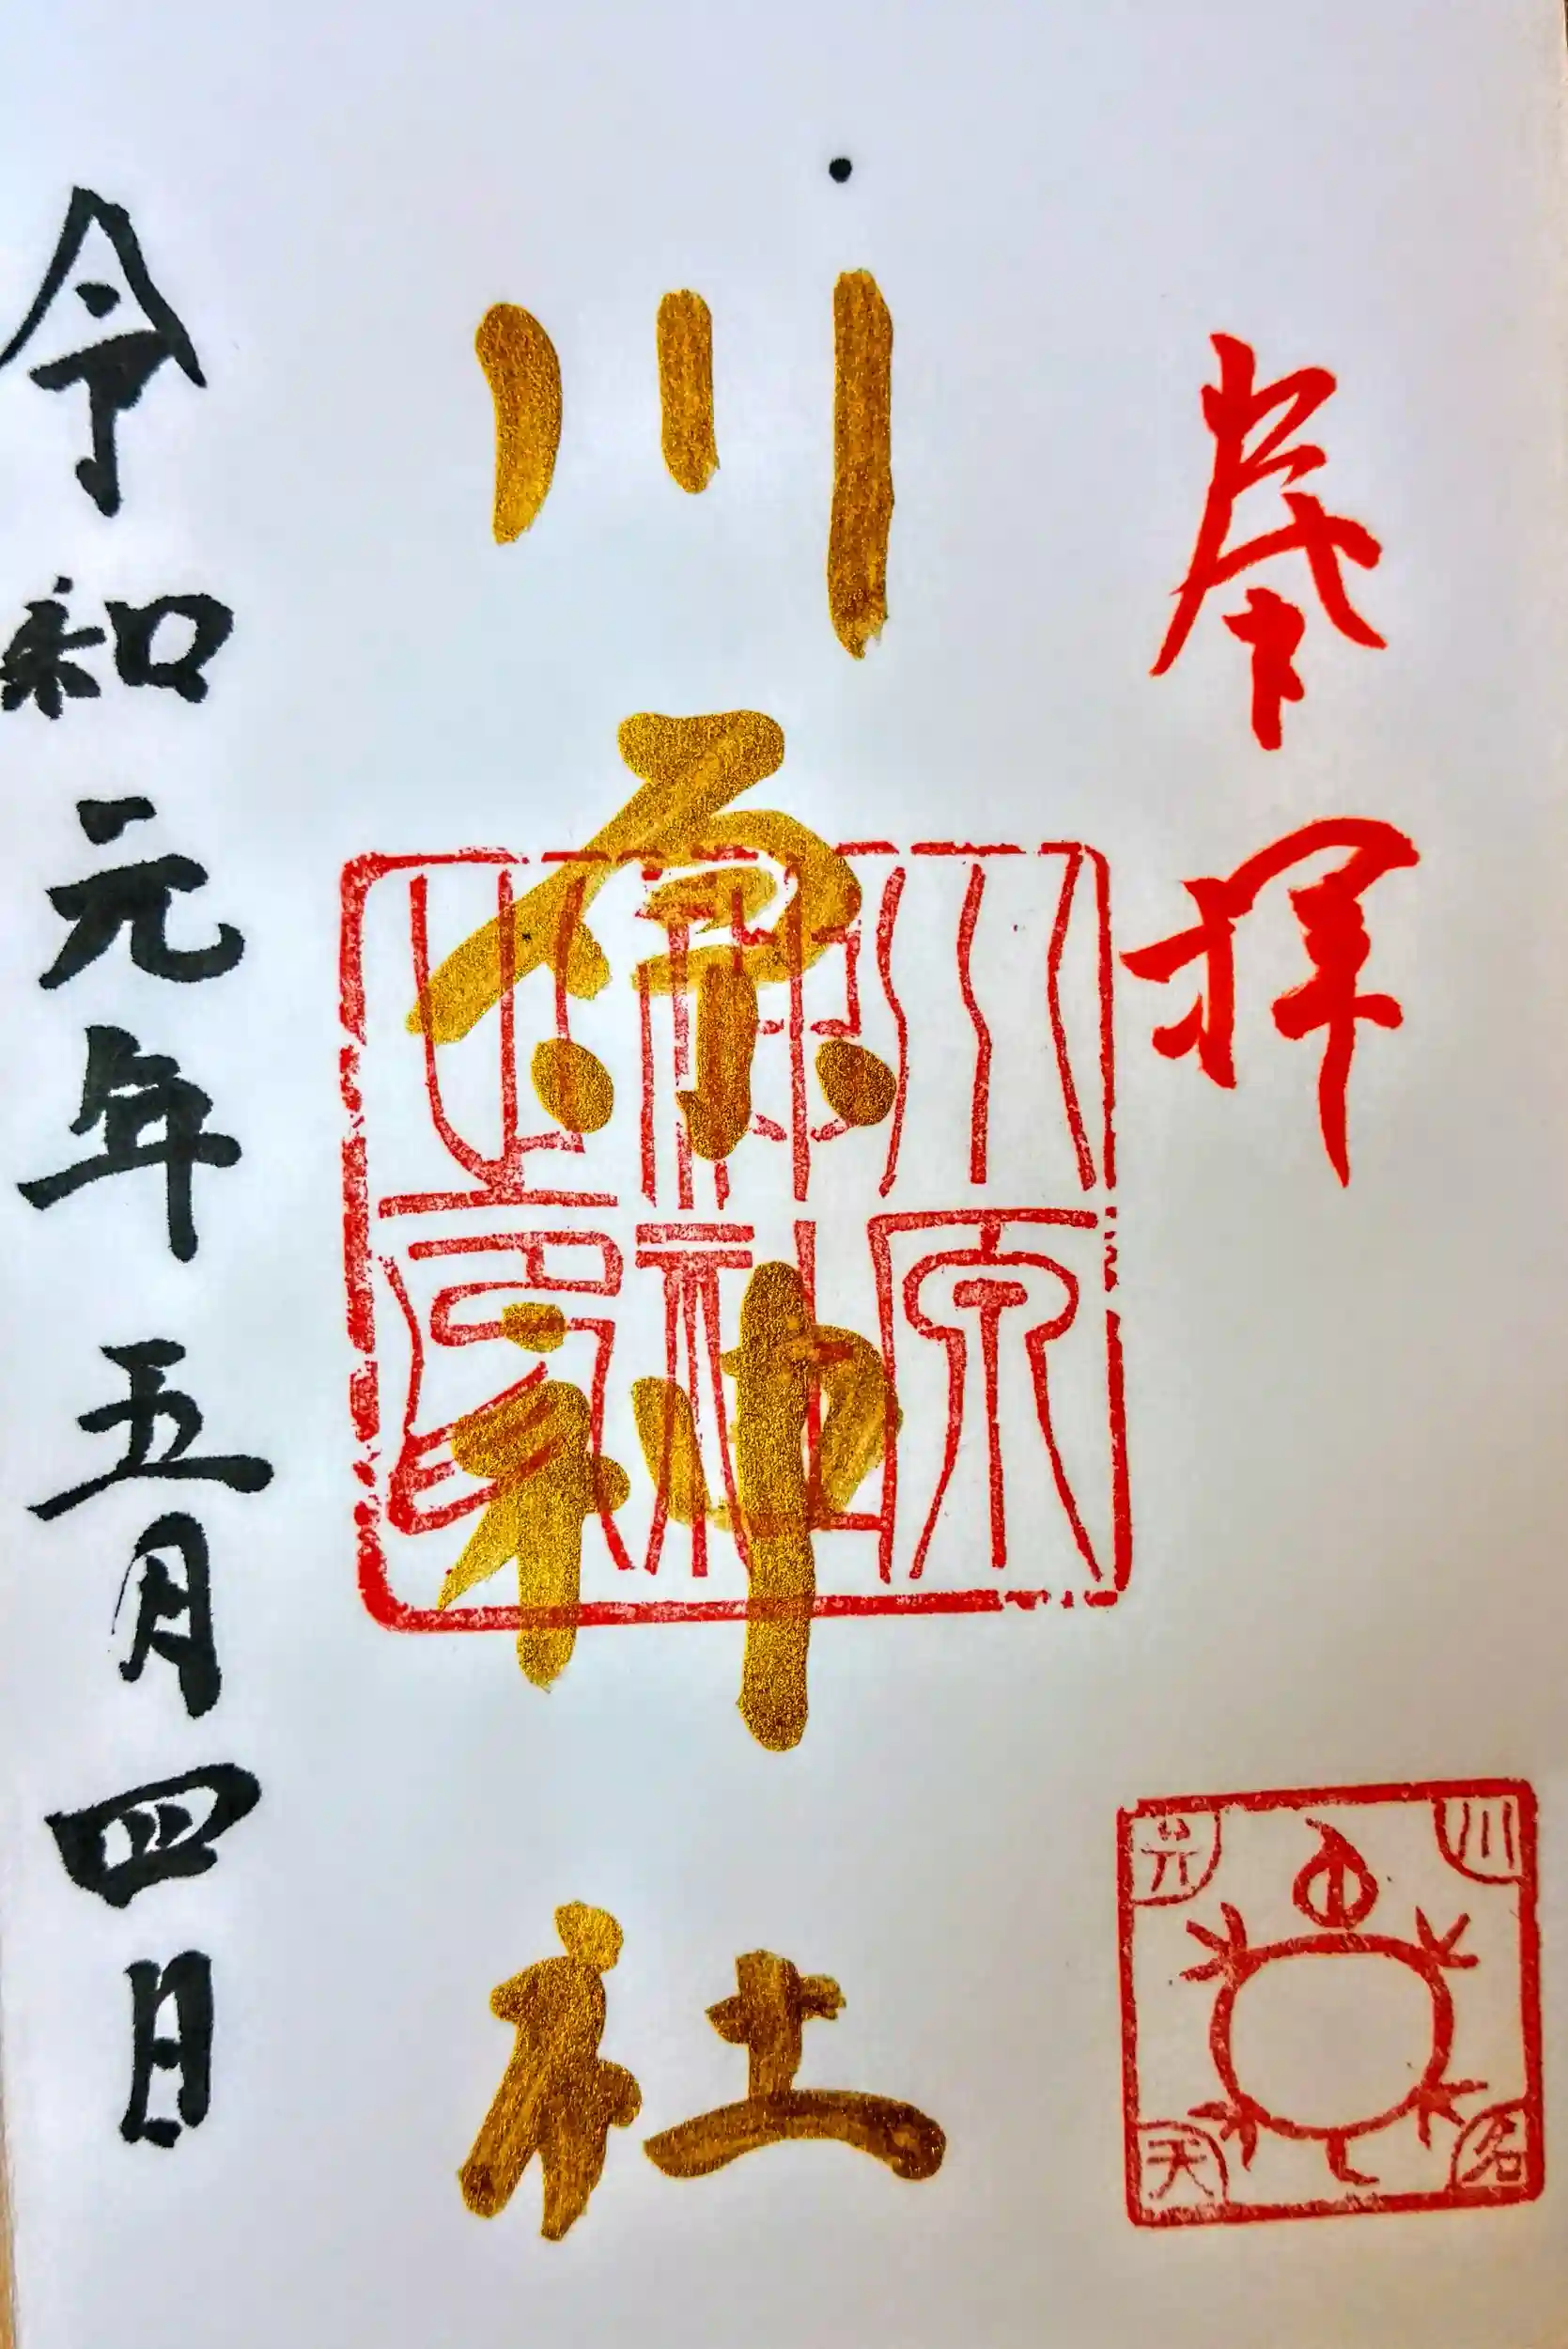 奉拝
川原神社
川原神社之印
川
弁
名
天
令和元年五月四日